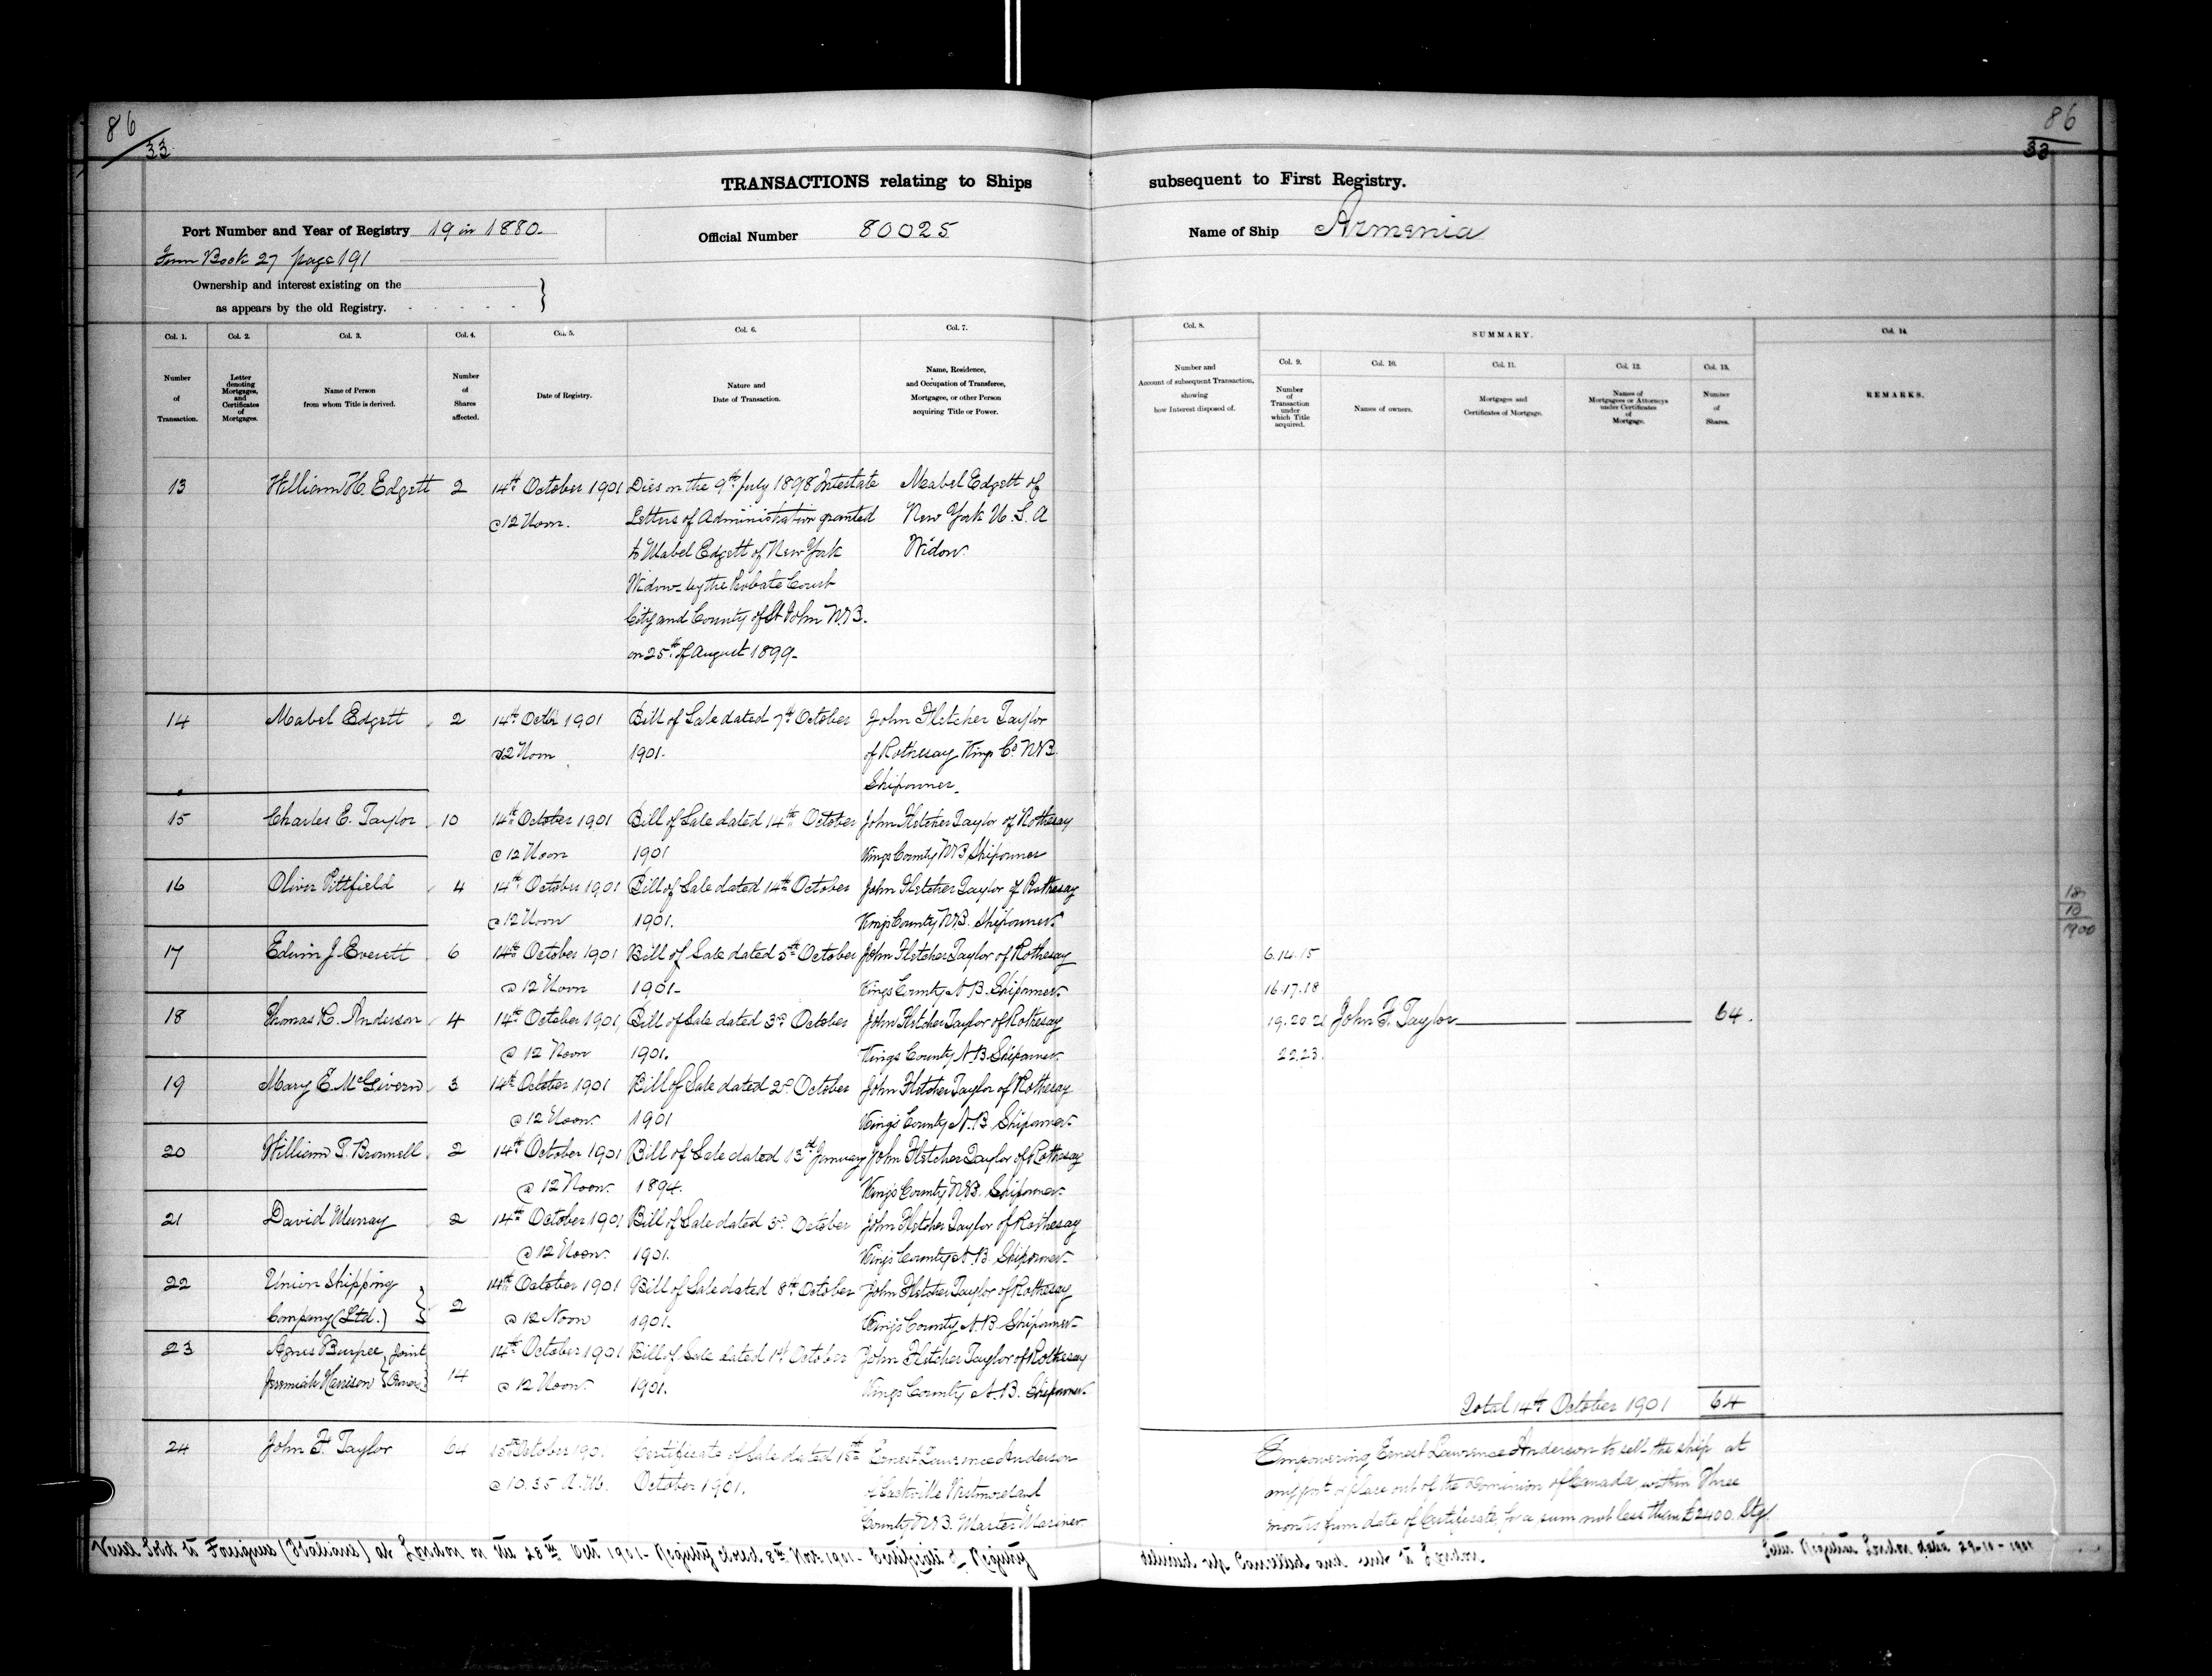 86
33
86
33
TRANSACTIONS relating to Ships subsequent to First Registry.
Port Number and Year of Registry 19 in 1880.
Official Number 80025
Name of Ship Armenia
From Book 27 page 191
Ownership and interest existing on the
as appears by the old Registry.
Col. 1. Number of Transaction.
Col. 2. Letter denoting Mortgages, and Certificates of Mortgages.
Col. 3. Name of Person from whom Title is derived.
Col. 4. Number of Shares affected.
Col. 5. Date of Registry.
Col. 6. Nature and Date of Transaction.
Col. 7. Name, Residence, and Occupation of Transferee, Mortgagee, or other Person acquiring Title or Power.
Col. 8. Number and Account of subsequent Transaction, showing how Interest disposed of.
SUMMARY.
Col. 9. Number of Transaction under which Title acquired.
Col. 10. Names of owners.
Col. 11. Mortgages and Certificates of Mortgage.
Col. 12. Names of Mortgagees or Attorneys under Certificates of Mortgage.
Col. 13. Number of Shares.
Col. 14. REMARKS.
13 William H. Edgett 2 14th October 1901 Dies on the 9th July 1898 Intestate Mabel Edgett of
@ 12 Noon. Letters of Administration granted New York U.S.A
to Mabel Edgett of New York Widow
Widow by the Probate Court
City and County of St John N.B.
on 25th of August 1899.
14 Mabel Edgett 2 14th Octr 1901 Bill of Sale dated 7th October John Fletcher Taylor
@12 Noon 1901. of Rothesay Kings Co N.B.
Shipowner.
15 Charles E. Taylor 10 14th October 1901 Bill of Sale dated 14th October John Fletcher Taylor of Rothesay
@ 12 Noon 1901 Kings County N.B. Shipowner
16 Oliver Pittfield 4 14th October 1901 Bill of Sale dated 14th October John Fletcher Taylor of Rothesay
@ 12 Noon 1901. Kings County N.B. Shipowner.
17 Edwin J. Everett 6 14th October 1901 Bill of Sale dated 5th October John Fletcher Taylor of Rothesay
@ 12 Noon 1901. Kings County N.B. Shipowner.
18 Thomas R. Anderson 4 14th October 1901 Bill of Sale dated 3rd October John Fletcher Taylor of Rothesay
@ 12 Noon 1901. Kings County N.B. Shipowner.
19 Mary E. McGivern 3 14th October 1901 Bill of Sale dated 2d October John Fletcher Taylor of Rothesay
@ 12 Noon. 1901 Kings County N.B. Shipowner.
20 William P. Brownell 2 14th October 1901 Bill of Sale dated 13th January John Fletcher Taylor of Rothesay
@ 12 Noon. 1894. Kings County N.B. Shipowner.
21 David Murray 2 14th October 1901 Bill of Sale dated 3rd October John Fletcher Taylor of Rothesay
@ 12 Noon. 1901. Kings County N.B. Shipowner.
22 Union Shipping 14th October 1901 Bill of Sale dated 8th October John Fletcher Taylor of Rothesay
Company (Ltd.) 2 @ 12 Noon 1901. Kings County N.B. Shipowner.
23 Agnes Burpee Joint 14th October 1901 Bill of Sale dated 1st October John Fletcher Taylor of Rothesay
Jeremiah Harrison Owners 14 @ 12 Noon. 1901. Kings County N.B. Shipowner.
6.14.15
16.17.18
19.20 21 John F. Taylor 64.
22.23.
18
13
1900
Total 14th October 1901 64
24 John F. Taylor 64 15th October 1901 Certificate of Sale dated 15th Ernest Lawrence Anderson
@ 10.35 A.M. October 1901. of Sackville Westmoreland
County N.B. Master Mariner.
Empowering Ernest Lawrence Anderson to sell the ship at
any port or place out of the Dominion of Canada, within Three
months from date of Certificate, for a sum not less than £2400 Stg.
Vessel Sold to Foreigners (Italians) at London on the 28th Oct 1901. Registry closed 8th Nov. 1901. Certificate of Registry
delivered up Cancelled and sent to London. Letter Registrar London dated 29-10-1901